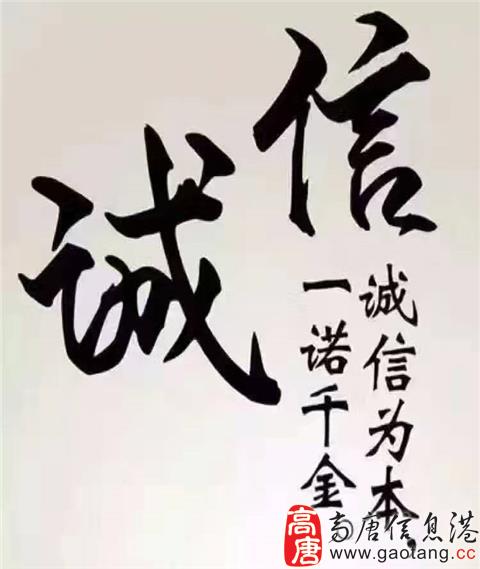 诚信
诚信为本，
一诺千金
高唐
高唐信息港
www.gaotang.cc